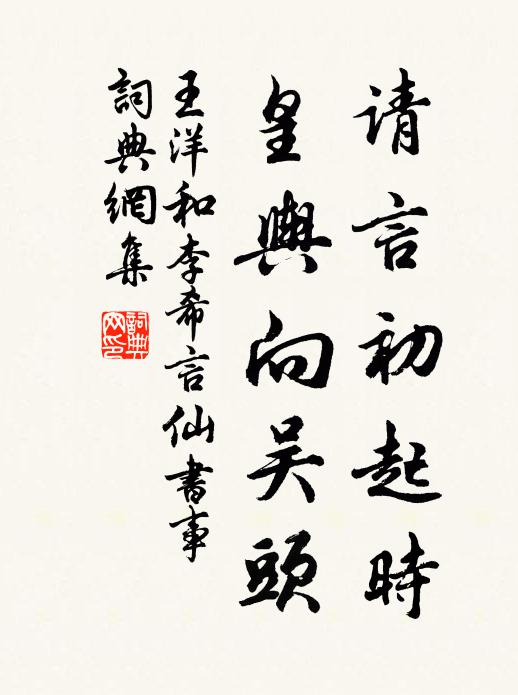 请言初起時
皇輿向吴頭
王洋和李希言仙書事
詞典網集
詞典网印